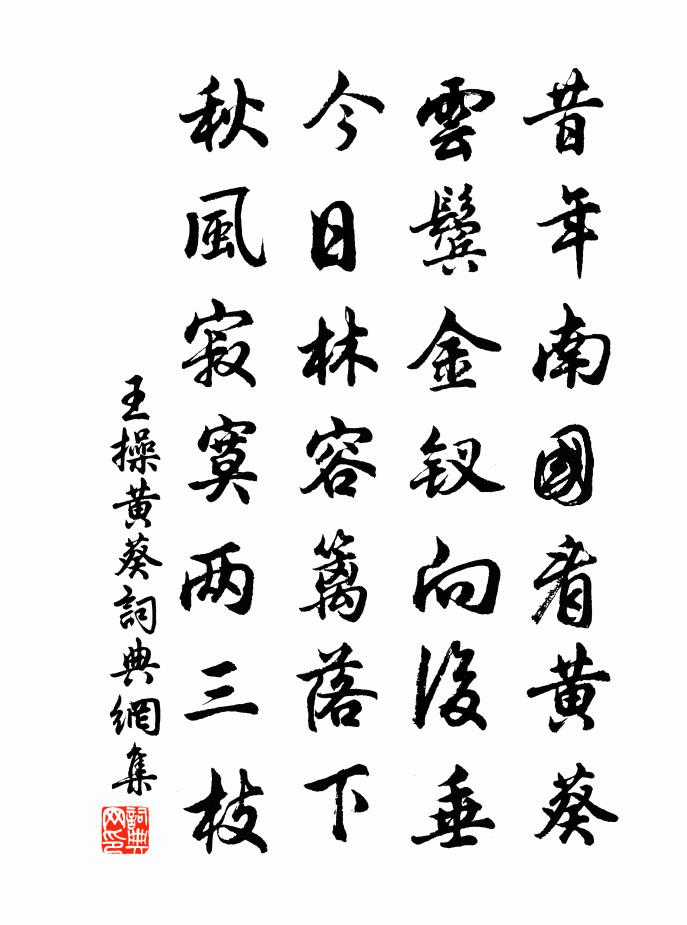 昔年南國看黄葵
雲鬓金钗向後垂
今日林容籬落下
秋風寂寞两三枝
王操黄葵詞典網集
詞典网印